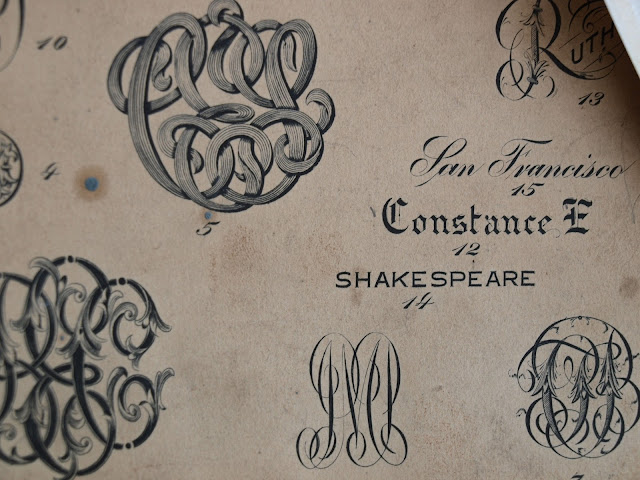 10
RUTH
13
4
5
San Francisco
15
Constance E
12
SHAKESPEARE
14